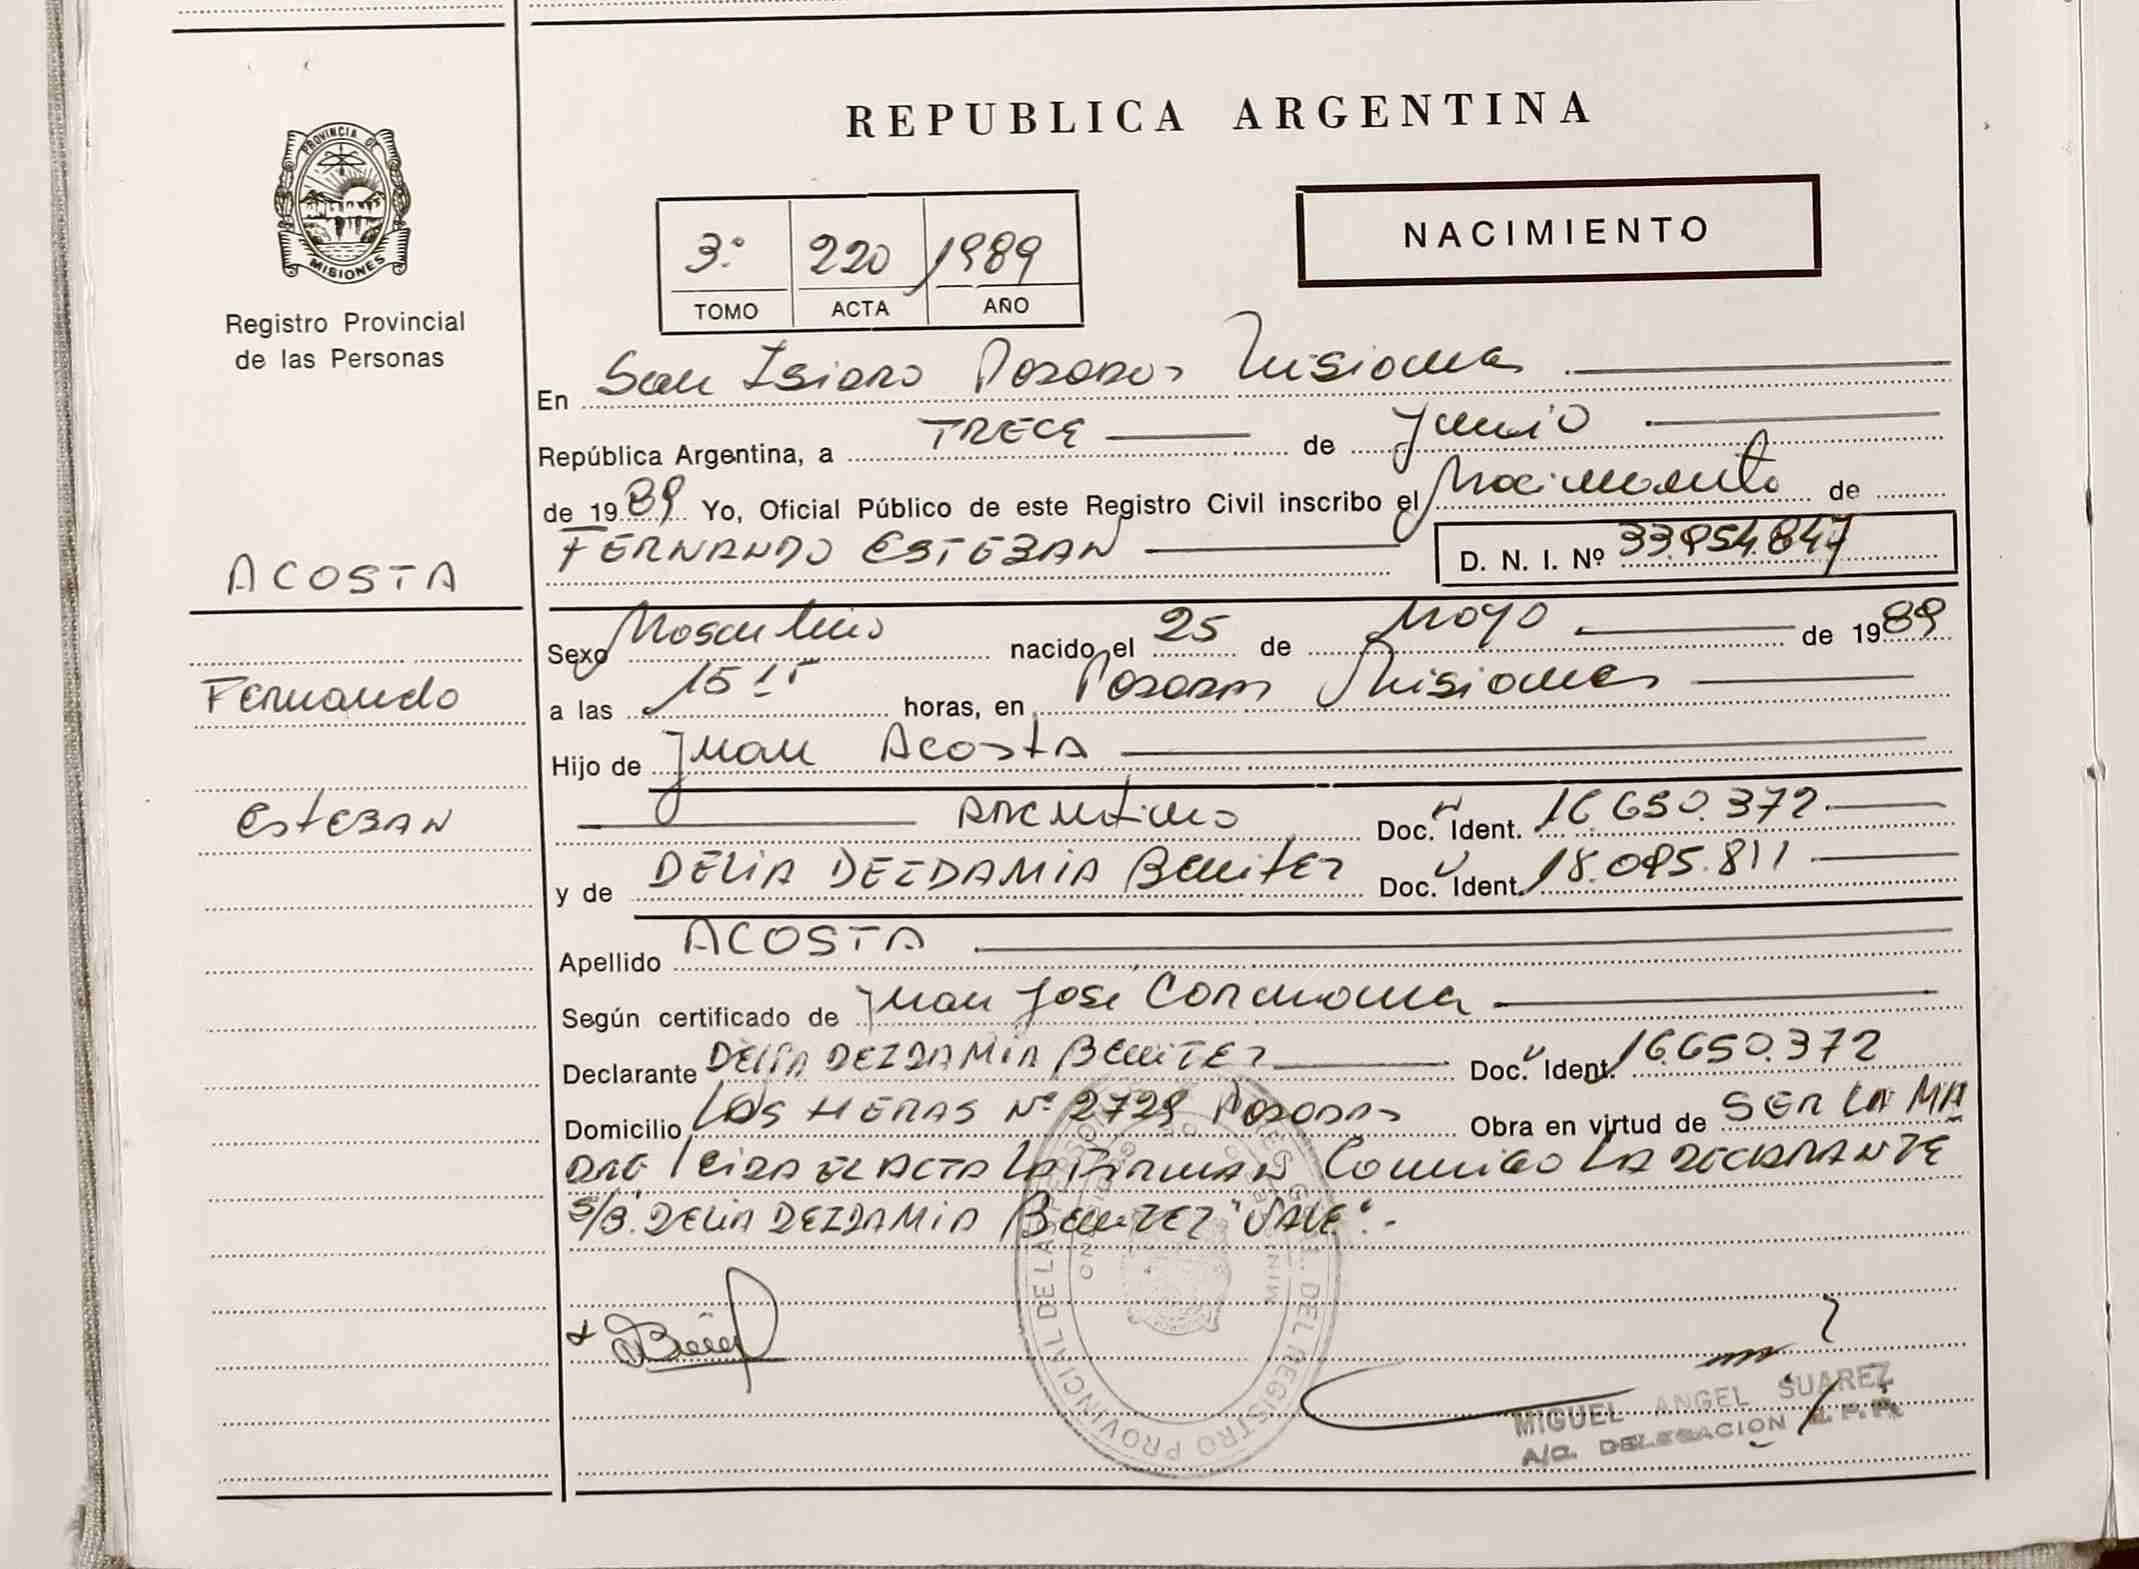 REPUBLICA ARGENTINA
PROVINCIA DE
MISIONES
Registro Provincial
de las Personas
NACIMIENTO
3º 220 1989
TOMO ACTA AÑO
En San Isidro Posadas Misiones
República Argentina, a TRECE de Junio
de 1989 Yo, Oficial Público de este Registro Civil inscribo el Nacimiento de
FERNANDO ESTEBAN D. N. I. Nº 33.954.847
ACOSTA
Fernando
Esteban
Sexo Masculino nacido el 25 de Mayo de 1989
a las 15 15 horas, en Posadas Misiones
Hijo de Juan Acosta
Argentino Doc. Ident. 16.650.372
y de DELIA DEZDAMIA Benitez Doc. Ident. 18.095.811
Apellido ACOSTA
Según certificado de Juan José
Declarante DELIA DEZDAMIA BENITEZ Doc. Ident. 16.650.372
Domicilio LAS HERAS Nº 2729 Posadas Obra en virtud de SER LA MA
DRE leida EL ACTA LA FIRMAN Conmigo LA DECLARANTE
S/B. DELIA DEZDAMIA BENITEZ "VALE".-
MIGUEL ANGEL SUAREZ
A/C. DELEGACION R. P. P.